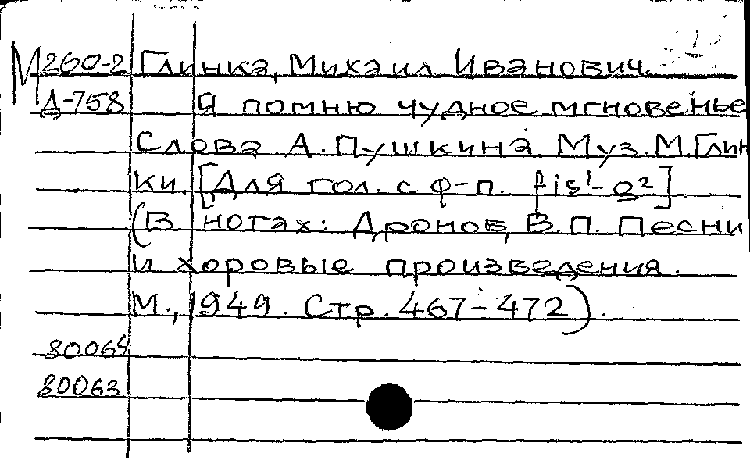 М260-2 Глинка, Михаил Иванович.
Д-758 Я помню чудное мгновенье
Слова А. Пушкина. Муз. М. Глин
ки. [Для гол. с ф-п. fis¹-g²]
(В нотах: Дронов, В. П. Песни
и хоровые произведения.
М., 1949. Стр. 467-472).
80064
80063